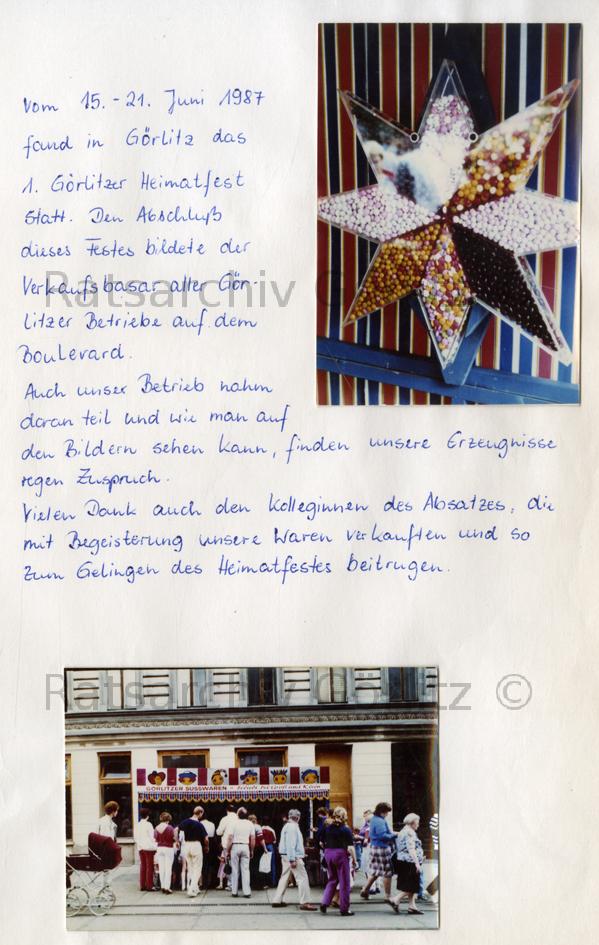 Vom 15.-21. Juni 1987
fand in Görlitz das
1. Görlitzer Heimatfest
statt. Den Abschluß
dieses Festes bildete der
Verkaufsbasar aller Gör-
litzer Betriebe auf dem
Boulevard.
Auch unser Betrieb nahm
daran teil und wie man auf
den Bildern sehen kann, finden unsere Erzeugnisse
regen Zuspruch.
Vielen Dank auch den Kolleginnen des Absatzes, die
mit Begeisterung unsere Waren verkauften und so
zum Gelingen des Heimatfestes beitrugen.
Ratsarchiv G
Ratsarchiv Görlitz ©
GÖRLITZER SÜSSWAREN - beliebt bei Groß und Klein